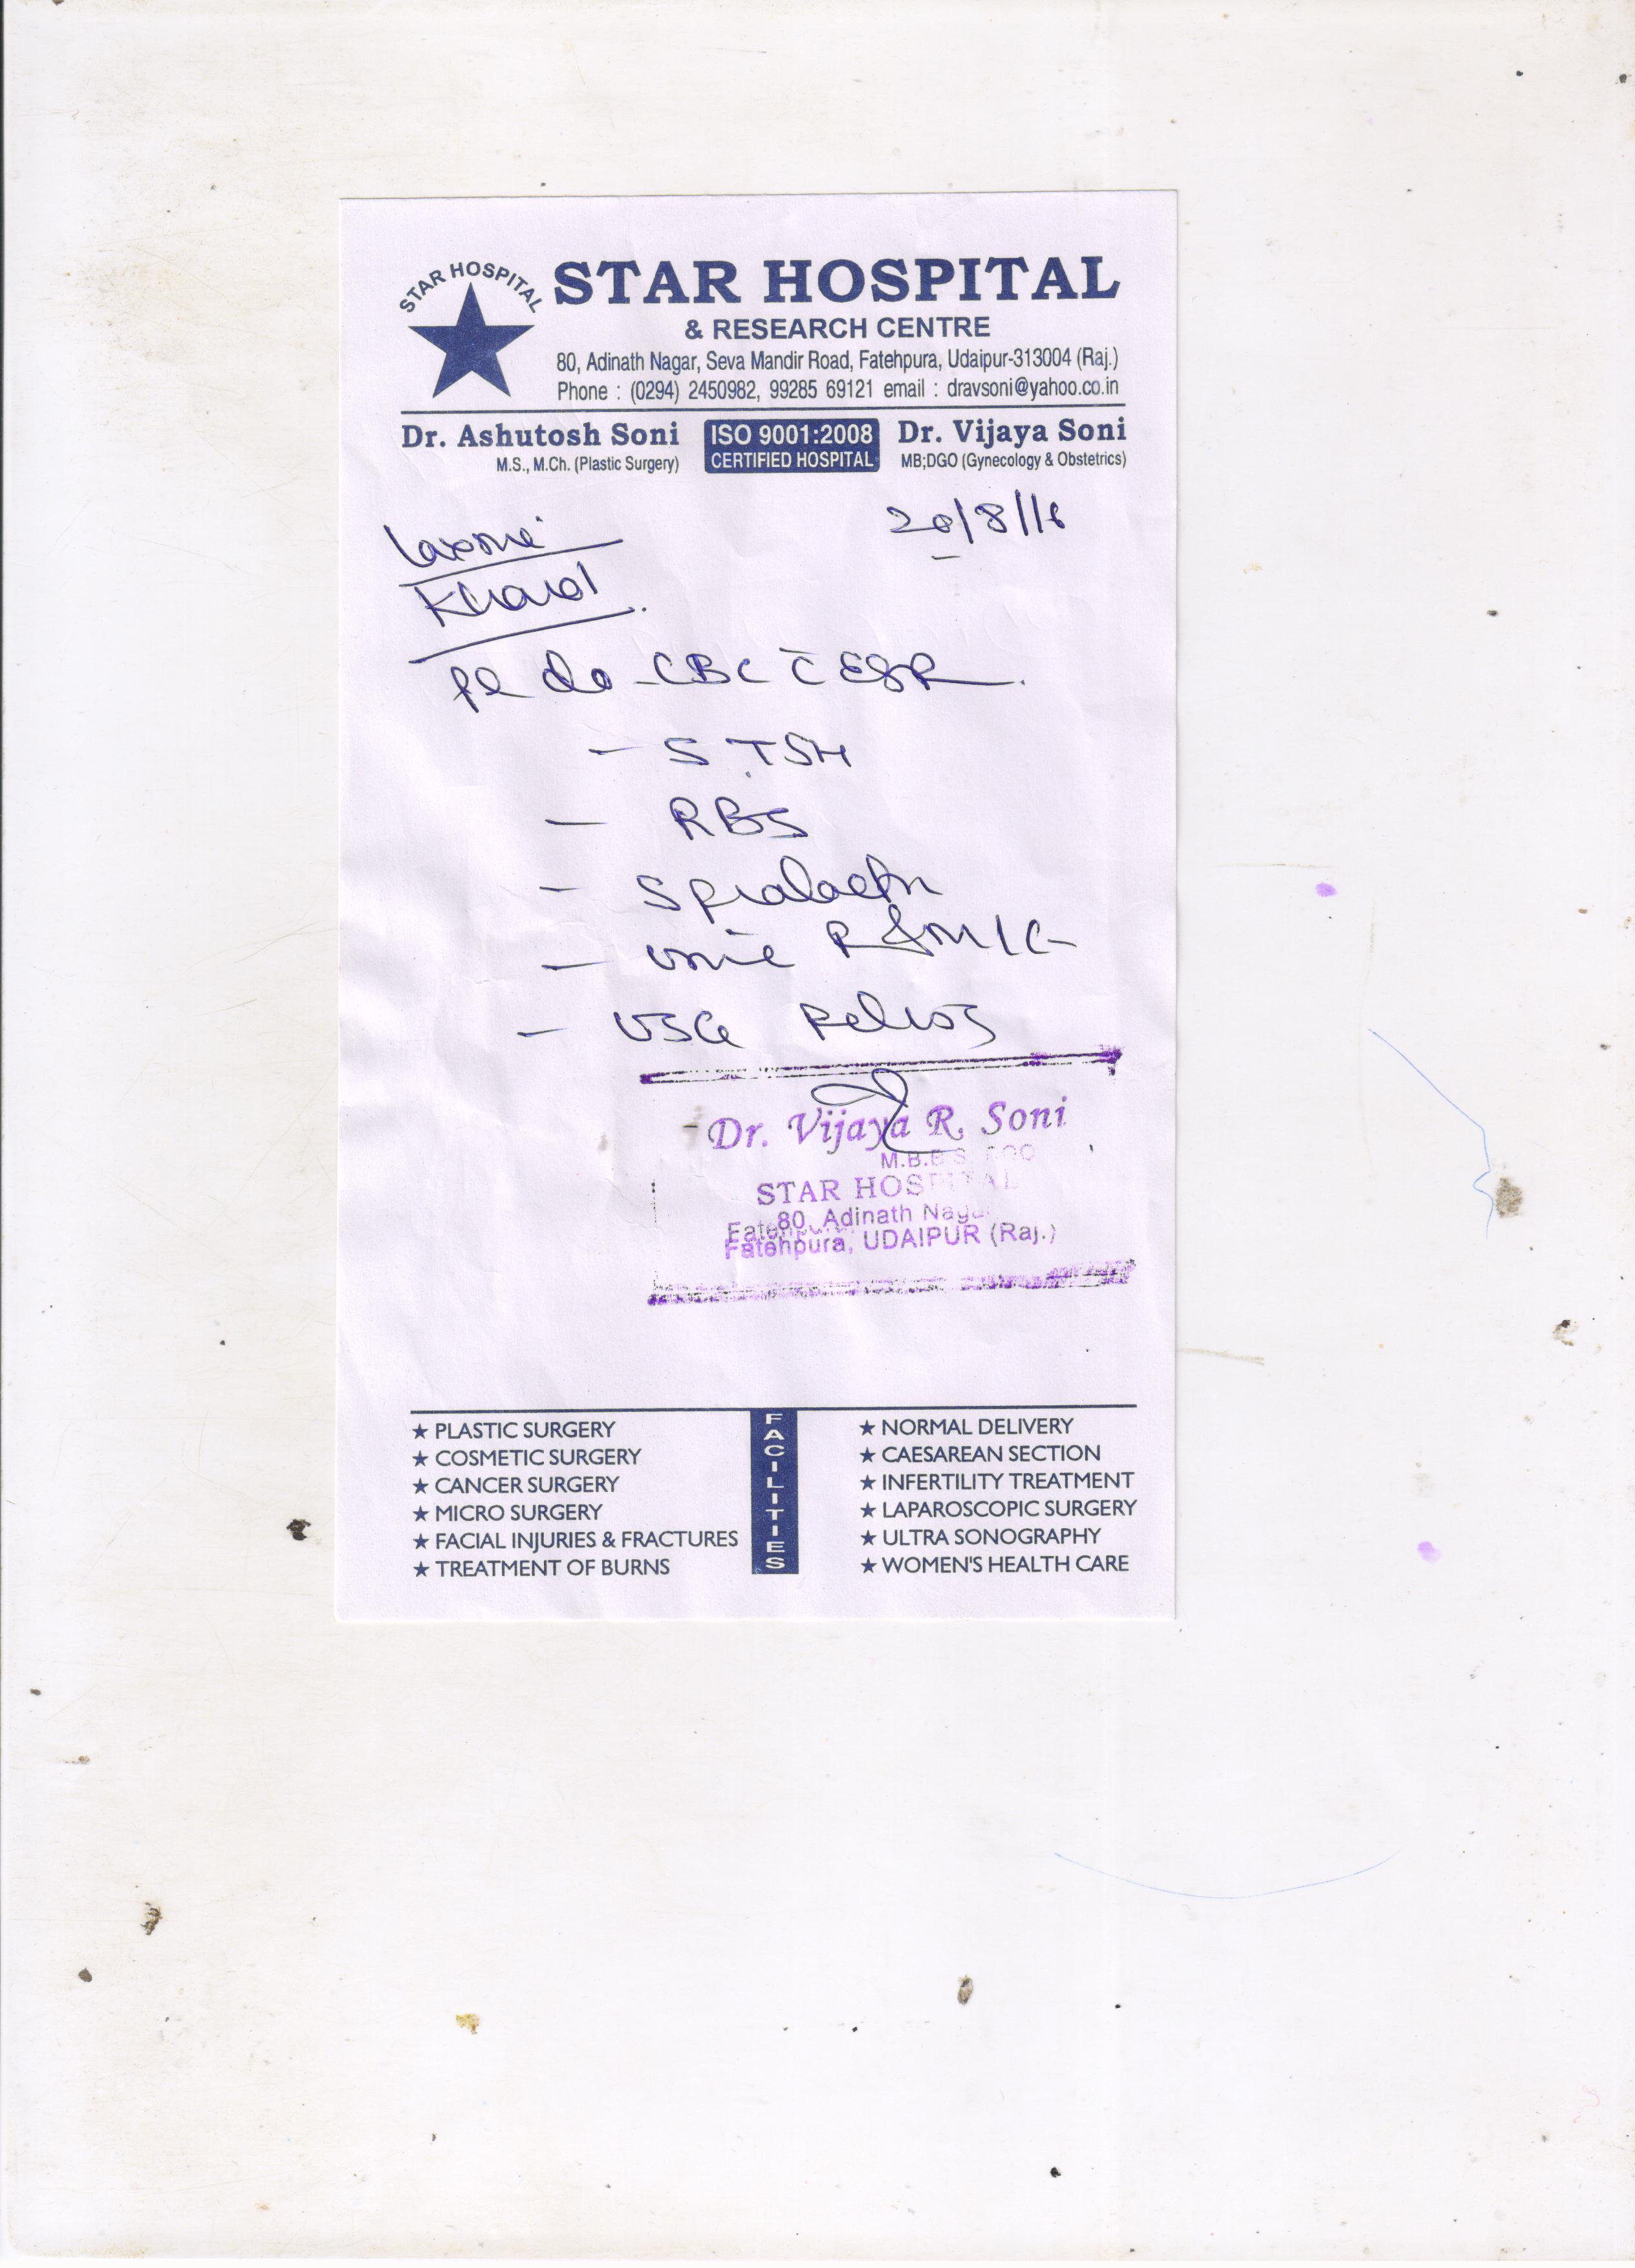 STAR HOSPITAL
STAR HOSPITAL
& RESEARCH CENTRE
80, Adinath Nagar, Seva Mandir Road, Fatehpura, Udaipur-313004 (Raj.)
Phone : (0294) 2450982, 99285 69121 email : dravsoni@yahoo.co.in
Dr. Ashutosh Soni
M.S., M.Ch. (Plastic Surgery)
ISO 9001:2008
CERTIFIED HOSPITAL
Dr. Vijaya Soni
MB;DGO (Gynecology & Obstetrics)
20/8/16
Laxmi
pl do - CBC c̄ ESR
- S. TSH
- RBS
- S prolactin
- urine R & M / C
- USG Pelvis
Dr. Vijaya R. Soni
M.B.B.S.
STAR HOSPITAL
80, Adinath Naga
Fatehpura, UDAIPUR (Raj.)
★ PLASTIC SURGERY
★ COSMETIC SURGERY
★ CANCER SURGERY
★ MICRO SURGERY
★ FACIAL INJURIES & FRACTURES
★ TREATMENT OF BURNS
FACILITIES
★ NORMAL DELIVERY
★ CAESAREAN SECTION
★ INFERTILITY TREATMENT
★ LAPAROSCOPIC SURGERY
★ ULTRA SONOGRAPHY
★ WOMEN'S HEALTH CARE